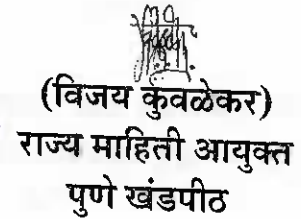 (विजय कुवळेकर)
राज्य माहिती आयुक्त
पुणे खंडपीठ